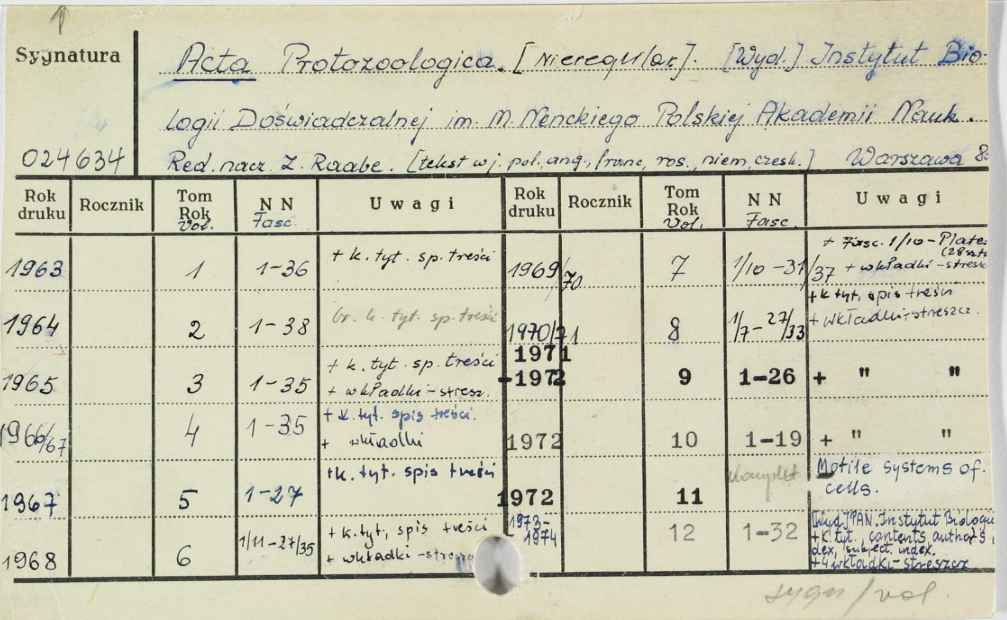 Sygnatura
Acta Protozoologica. [Nieregular]. [Wyd.] Instytut Bio-
logii Doświadczalnej im. M. Nenckiego Polskiej Akademii Nauk.
024634
Red. nacz. Z. Raabe. [tekst w j. pol., ang., franc., ros., niem., czesk.] Warszawa 8º
Rok druku Rocznik Tom Rok Vol. N N Fasc. Uwagi Rok druku Rocznik Tom Rok Vol. N N Fasc. Uwagi
1963 1 1-36 + k. tyt. sp. treści
1969/70 7 1/10-31/37 + Fasc. 1/10-Plates (28szt) + wkładki-stresz
1964 2 1-38 br. k. tyt. sp. treści
1970/71 8 1/7-27/33 + k tyt. spis treści + wkładki-streszcz.
1965 3 1-35 + k. tyt. sp. treści + wkładki-stresz.
1971-1972 9 1-26 + " "
1966/67 4 1-35 + k. tyt. spis treści. + wkładki
1972 10 1-19 + " "
1967 5 1-27 +k. tyt. spis treści
1972 11 komplet Motile systems of cells.
1968 6 1/11-27/35 + k. tyt, spis treści + wkładki-stresz
1973-1974 12 1-32 [Wyd.] PAN. Instytut Biologii +k. tyt., contents, authors, index, subject. index. +4 wkładki-streszcz
sygn/vol.